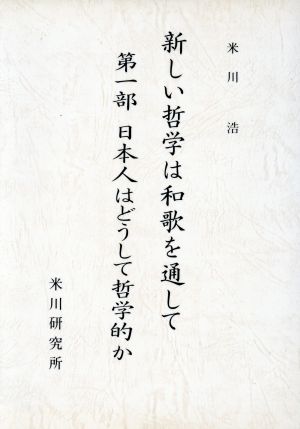 米川 浩
新しい哲学は和歌を通して
第一部 日本人はどうして哲学的か
米川研究所